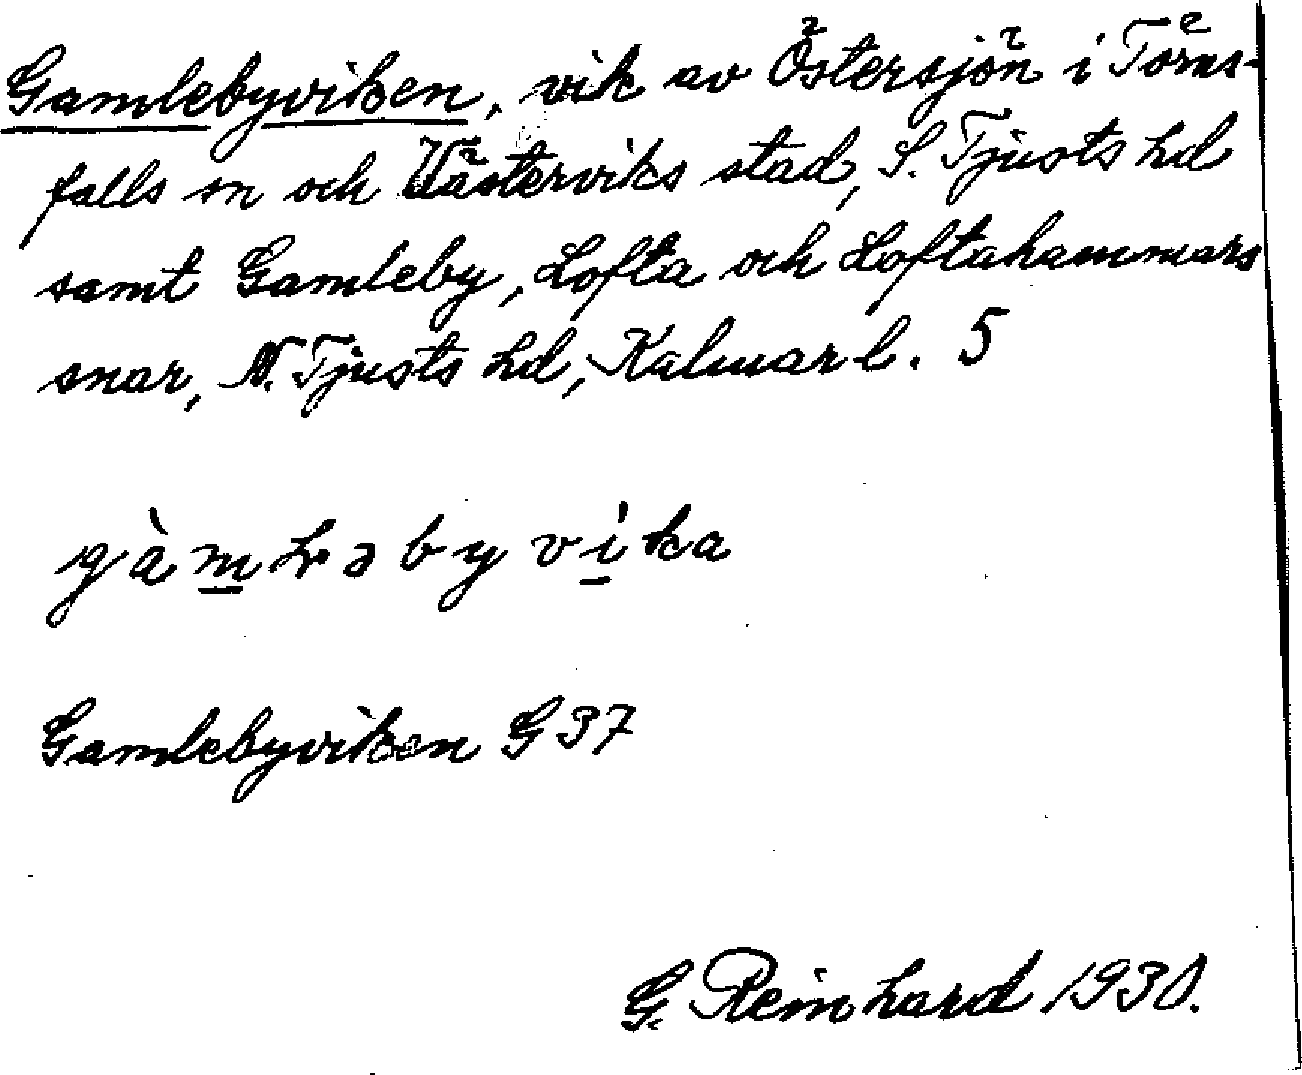 Gamlebyviken, vik av Östersjön i Törns-
falls sn och Västerviks stad, S. Tjusts hd
samt Gamleby, Lofta och Loftahammars
snar, N. Tjusts hd, Kalmar l. 5
gàmləbyvika
Gamlebyviken G 37
G. Reinhard 1930.